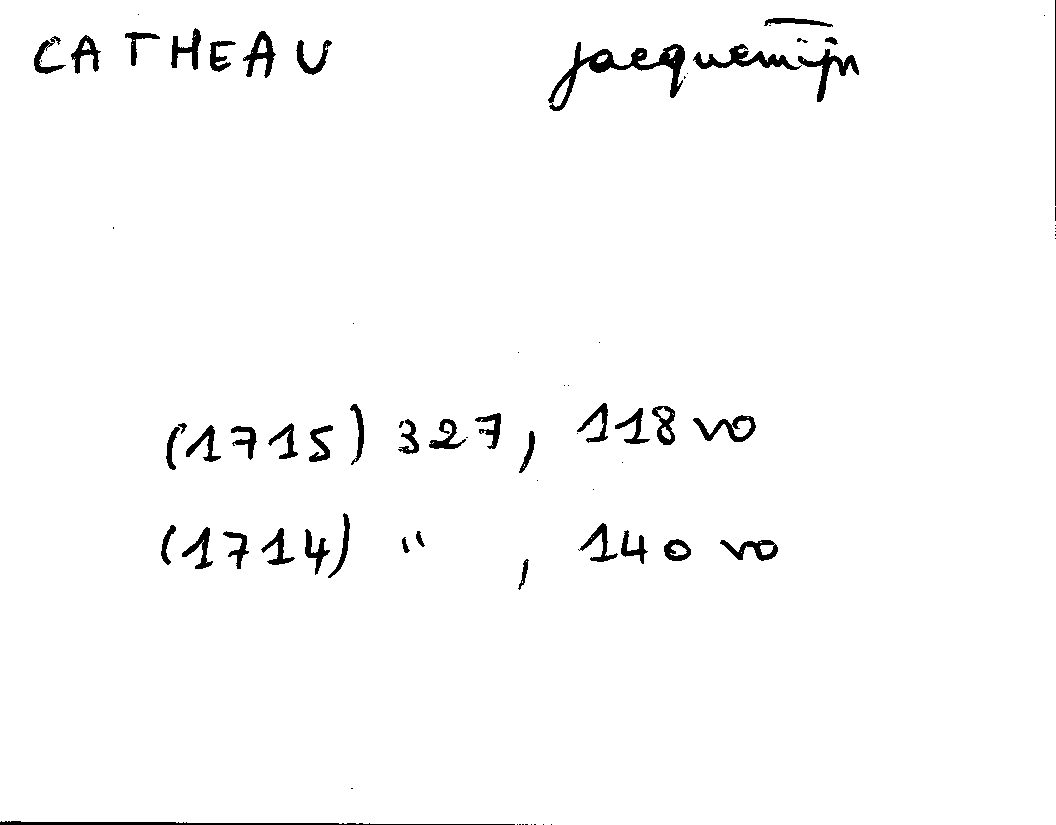 CATHEAU jacquemijn
(1715) 327, 118 vo
(1714) " , 140 vo